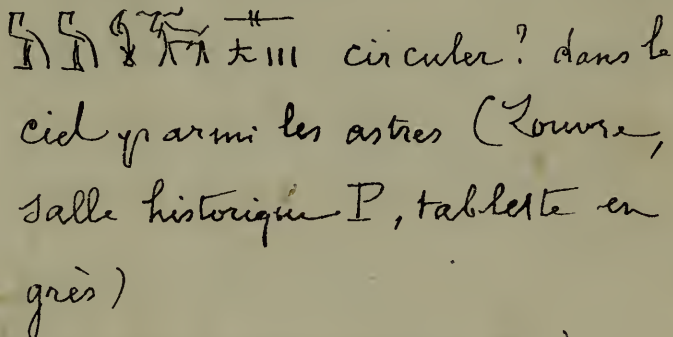 circuler? dans le
ciel parmi les astres (Louvre,
salle historique P, tablette en
grès)